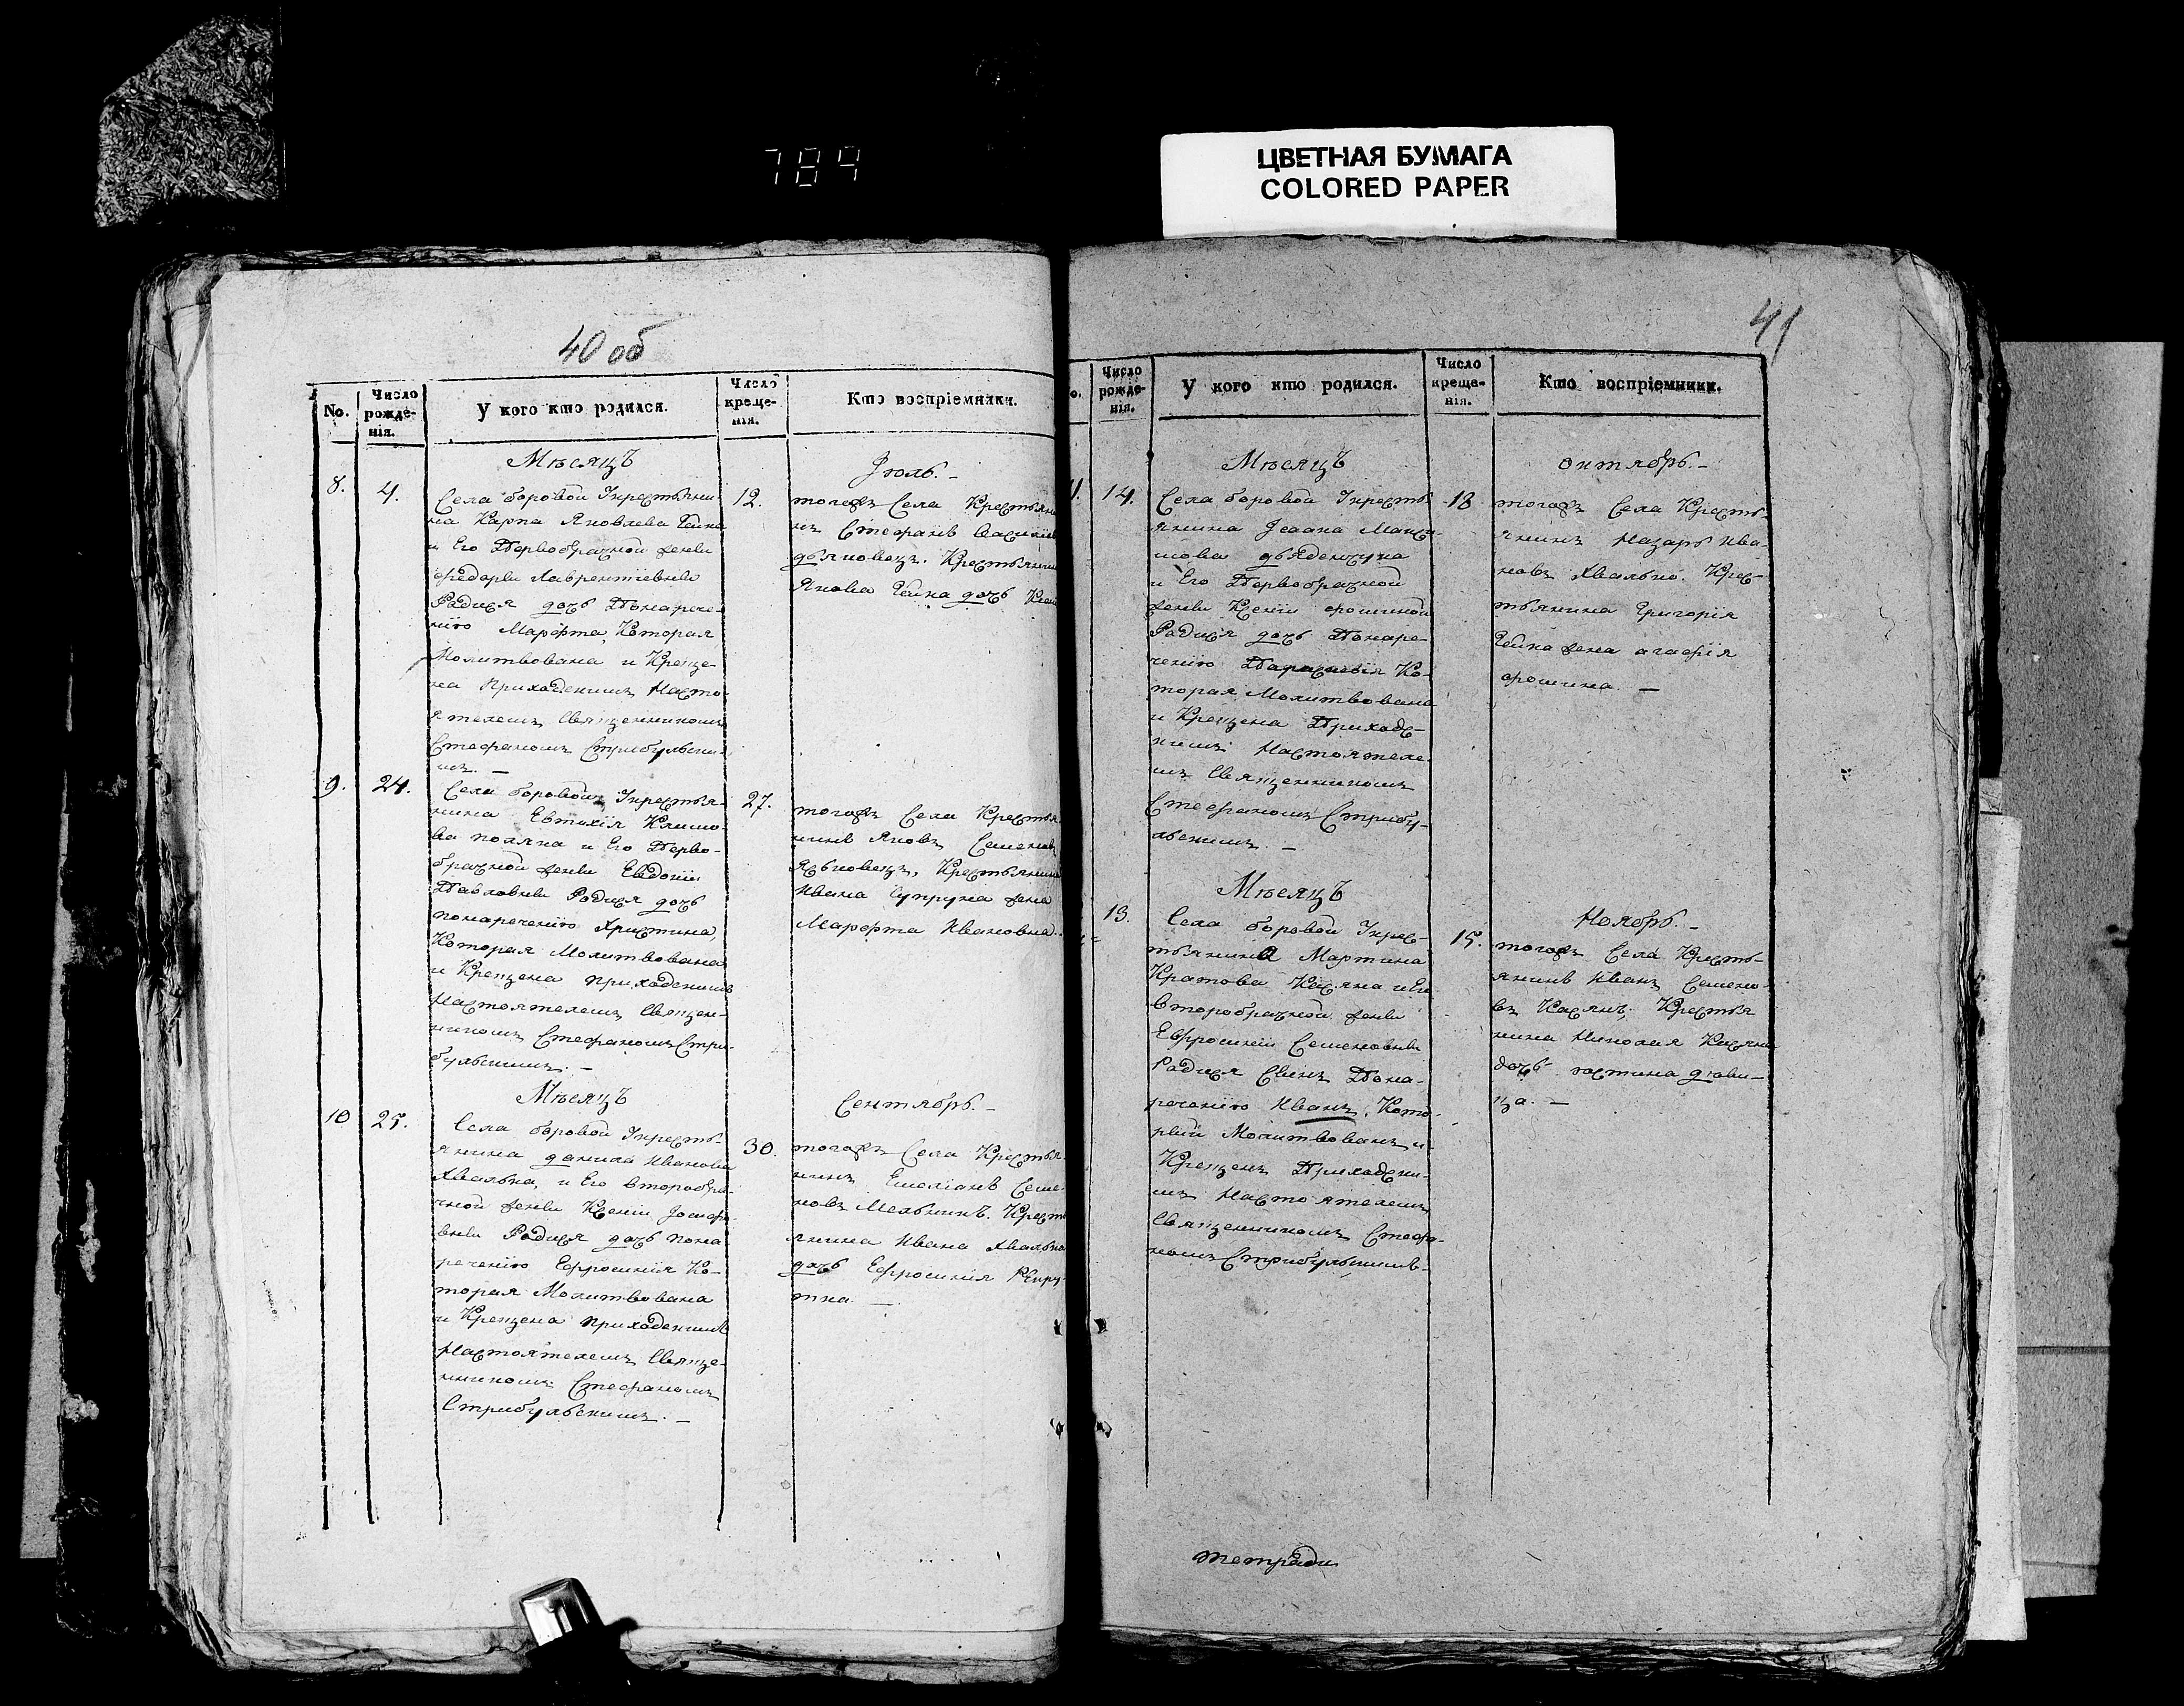 789
ЦВЕТНАЯ БУМАГА
COLORED PAPER
40 об
No.
Число рожде-нія.
У кого кто родился.
Число креще-нія.
Кто воспріемники.
Мѣсяцъ
Іюль. -
8.
4.
Села боровой Укрестьяни-
на Карпа Яковлева Чайка
и Его Первобрачной жены
Федоры Лаврентіевны
Родися дочь Понарече-
нію Марфта, Которая
Молитвована и Креще-
на Приходскимъ Насто-
ятелемъ Священникомъ
Стефаномъ Стрибульски-
мъ. —
12.
тогожъ Села Крестьяни
нъ Стефанъ
Крестьянина
Якова Чайка дочь
9.
24.
Села боровой Укрестья-
нина Евтихія Климо-
ва поляка и Его Перво-
брачной жены Евдокіи
Павловны Родися дочь
понареченію Христина,
Которая Молитвована
и Крещена приходскимъ
Настоятелемъ Священ-
никомъ Стефаномъ Стри-
бульскимъ. -
27.
тогожъ Села Крестья-
нинъ Яковъ Семеновъ
Крестьянина
Ивана Супруна жена
Марфта Ивановна.
Мѣсяцъ
Сентябрь. -
10
25.
Села боровой Укресть-
янина данила Иванова
Хвалька, и Его второбра-
чной жены Ксеніи Іосифо-
вны Родися дочь пона
реченію Ефросинія Ко-
торая Молитвована
и Крещена приходскимъ
Настоятелемъ Свяще-
нникомъ Стефаномъ
Стрибульскимъ. —
30.
тогожъ Села Крестья-
нинъ Емеліанъ Семе-
новъ Мельникъ. Кресть
янина Ивана Хвалька
дочь Ефросинія Рекру-
тка. —
41
Число рожде-нія.
У кого кто родился.
Число креще-нія.
Кто воспріемники.
Мѣсяцъ
октябрь. -
14.
Села боровой Укресть-
янина Іоана Макси-
мова
и Его Первобрачной
жены Ксеніи
Родися дочь Понаре-
ченію Параскевія Ко-
торая Молитвована
и Крещена Приходс-
кимъ Настоятеле-
мъ Священникомъ
Стефаномъ Стрибу-
льскимъ. —
18.
тогожъ Села Кресть-
янинъ Назарь Ива-
новъ Хвалько. Крес-
тьянина Григорія
Чайка жена агафія
Мѣсяцъ
Ноябрь. -
13.
Села боровой Укрес-
тьянина Мартина
Касяна и Его
второбрачной жены
Ефросиніи Семеновны
Родися Сынъ Пона-
реченію Иванъ, Кото-
рый Молитвованъ и
Крещенъ Приходски-
мъ Настоятелемъ
Священникомъ Стефа-
номъ Стрибульскимъ-
15.
тогожъ Села Кресть-
янинъ Иванъ Семено-
въ Касянъ. Крестья
нина Николая Касяна
дочь юстина дѣви-
ца. —
тетради